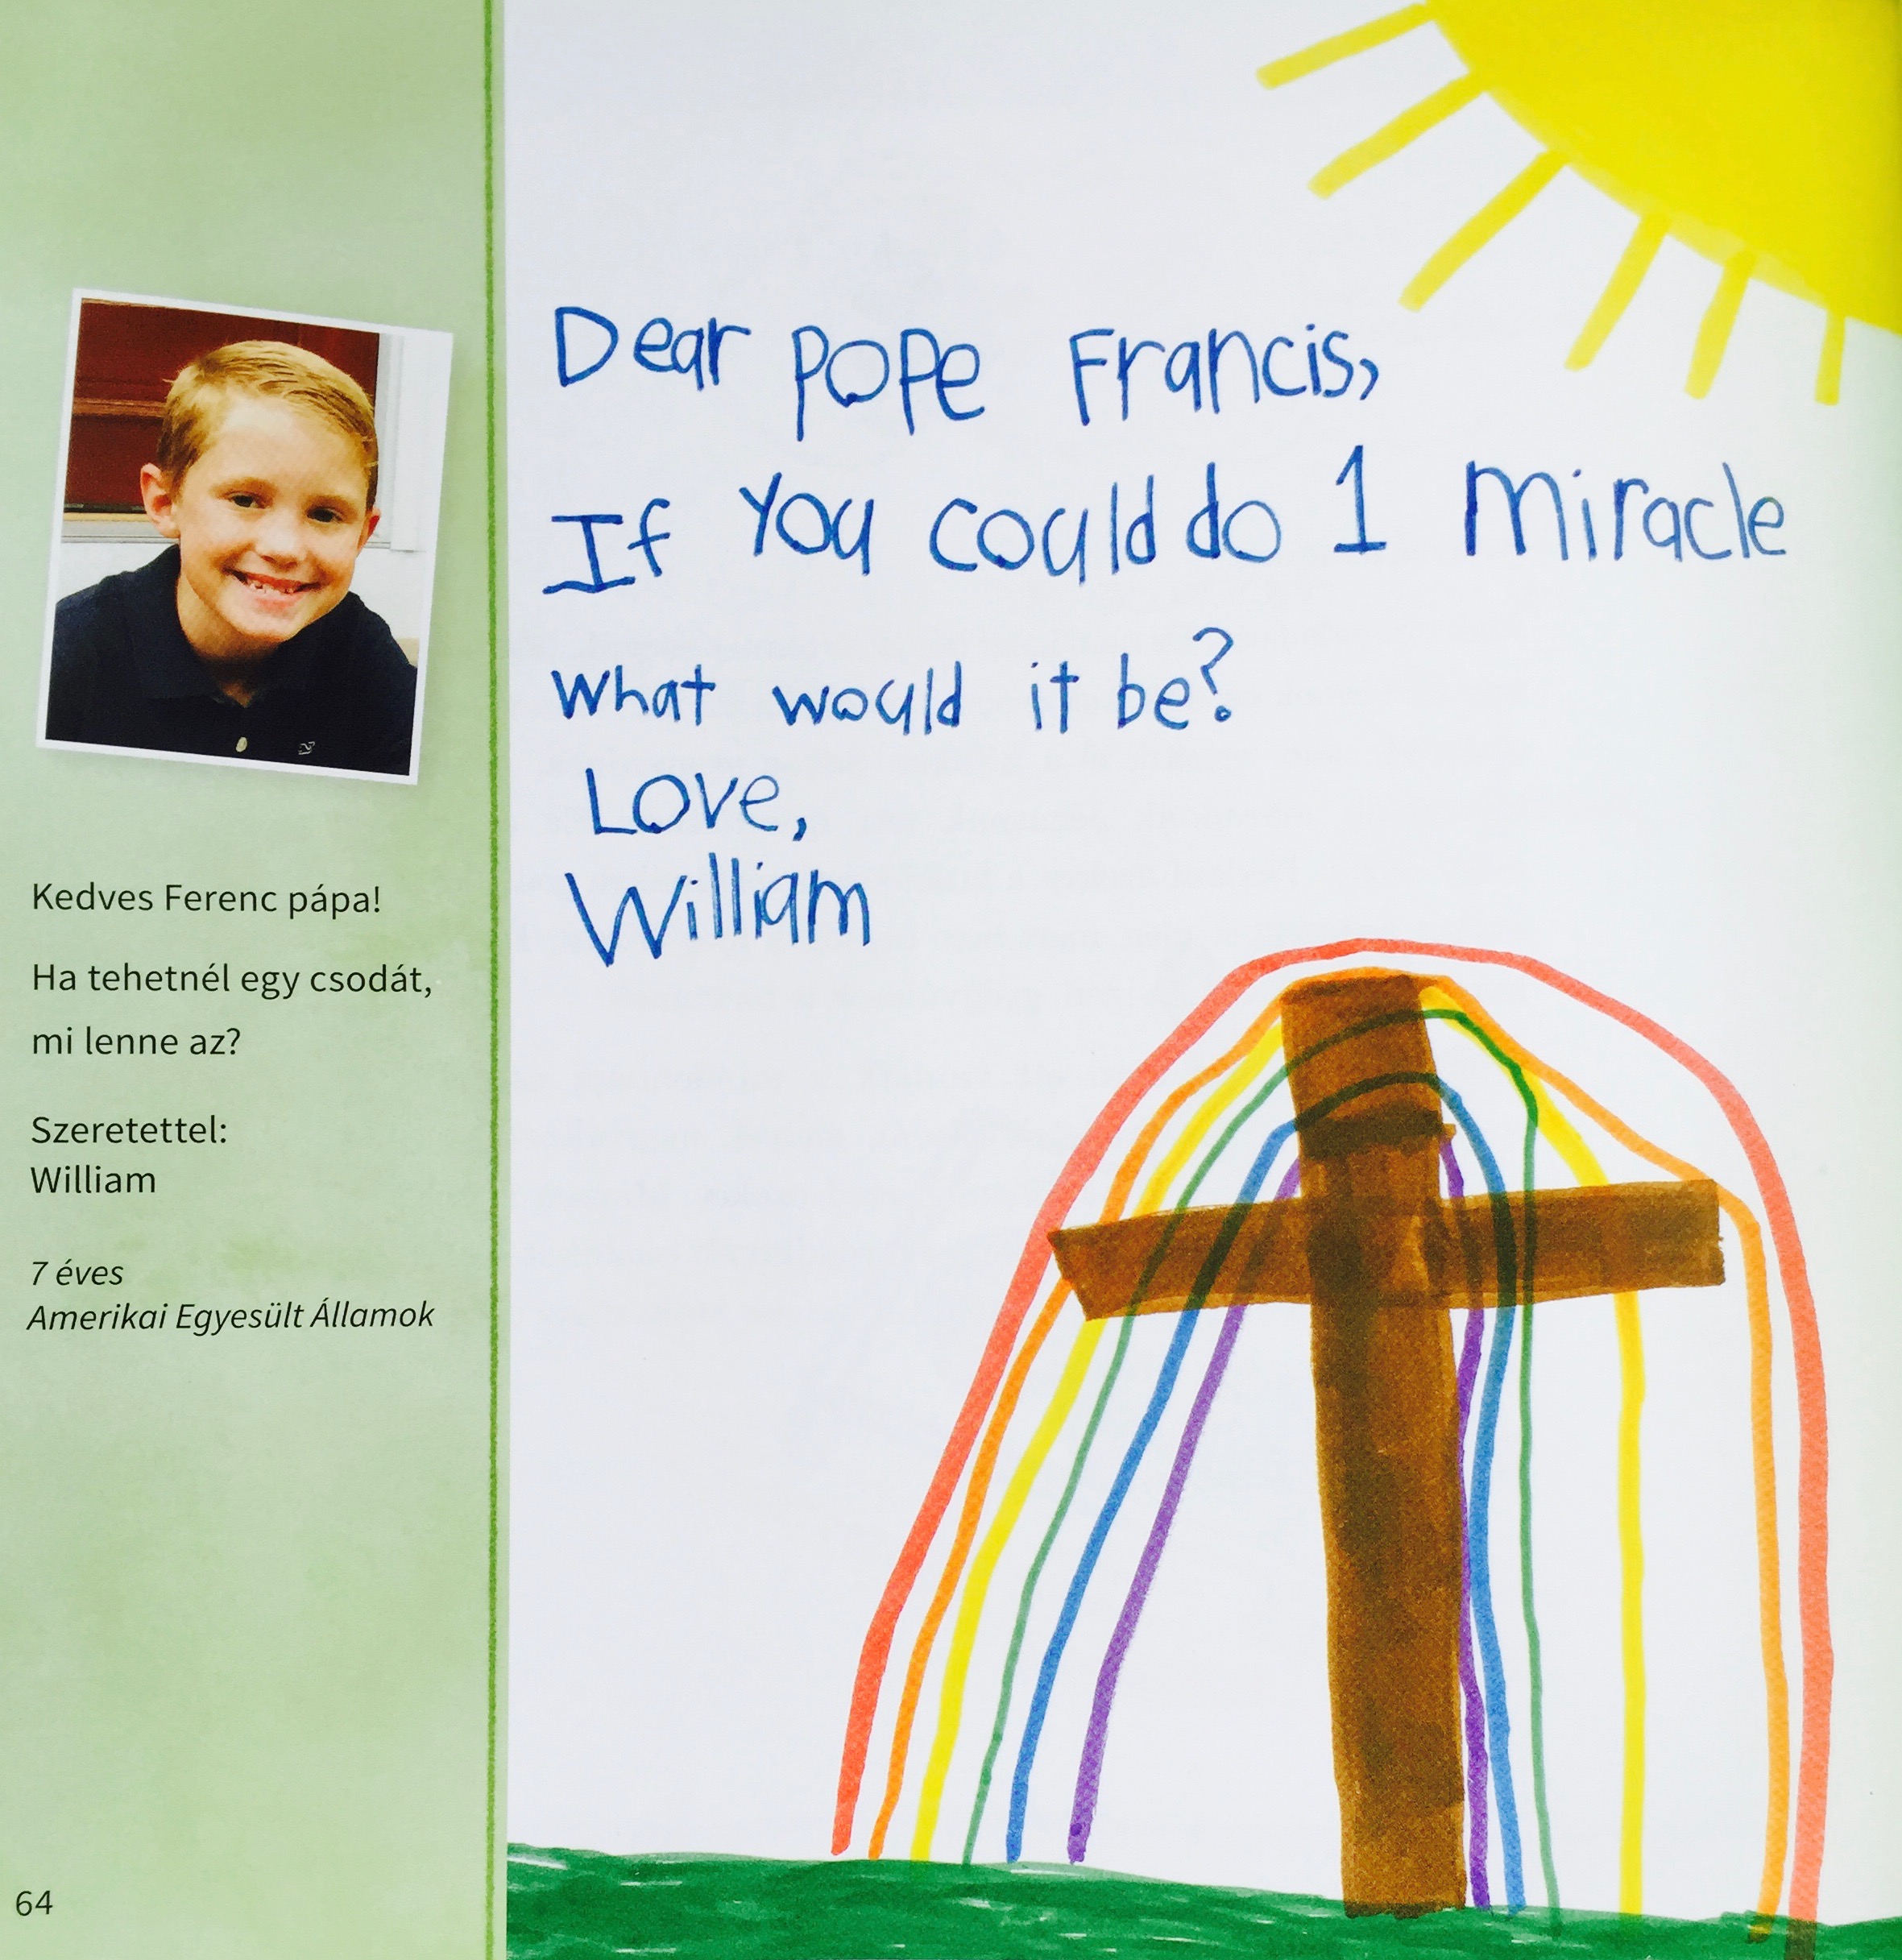 Dear Pope Francis,
If You could do 1 Miracle
what would it be?
Love,
William
Kedves Ferenc pápa!
Ha tehetnél egy csodát,
mi lenne az?
Szeretettel:
William
7 éves
Amerikai Egyesült Államok
64